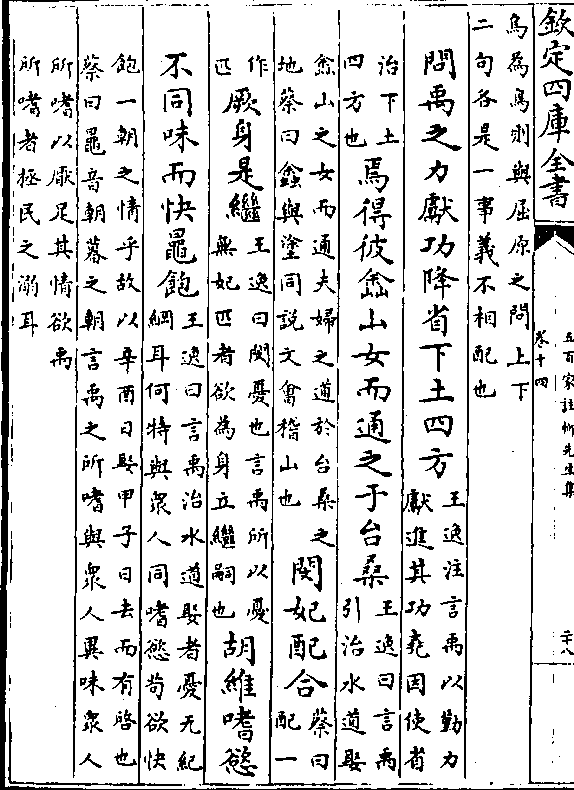 欽定四庫全書
五百家註柳先生集
卷十四
二十八
烏為烏則與屈原之問上下
二句各是一事義不相配也
問禹之力獻功降省下土四方
王逸注言禹以勤力
獻進其功堯因使省
治下土
四方也
焉得彼嵞山女而通之于台桑
王逸曰言禹
引治水道娶
嵞山之女而通夫婦之道於台桑之
地蔡曰嵞與塗同說文會稽山也
閔妃配合
蔡曰
配一
作
匹
厥身是繼
王逸曰閔憂也言禹所以憂
無妃匹者欲為身立繼嗣也
胡維嗜慾
不同味而快鼂飽
王逸曰言禹治水道娶者憂无紀
綱耳何特與衆人同嗜慾苟欲快
飽一朝之情乎故以辛酉日娶甲子日去而有啓也
蔡曰鼂音朝暮之朝言禹之所嗜與衆人異味衆人
所嗜以厭足其情欲禹
所嗜者拯民之溺耳